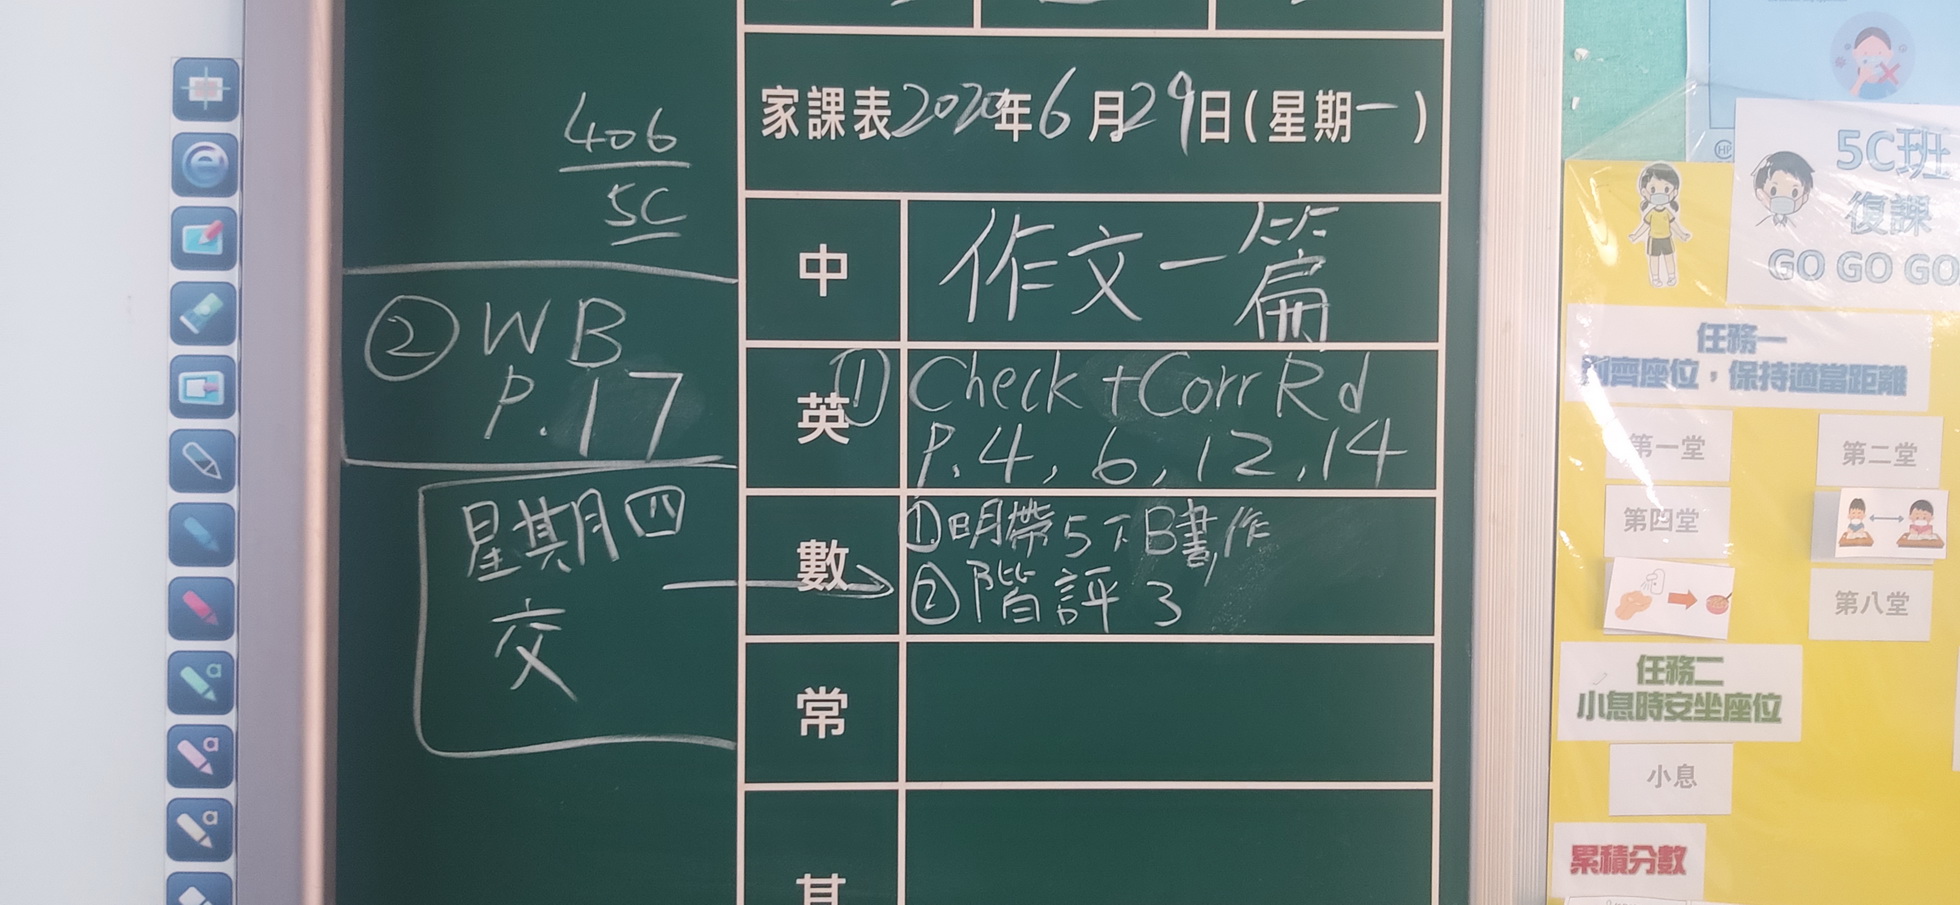 家課表2020年6月29日(星期一)
406
5C
中
作文一篇
② WB
P.17
英
① Check + Corr Rd
P.4, 6, 12, 14
數
①明帶5下B書,作
②階評3
星期四
交
常
其
5C班
復課
GO GO GO
任務一
齊座位，保持適當距離
第一堂
第二堂
第四堂
第八堂
任務二
小息時安坐座位
小息
累積分數